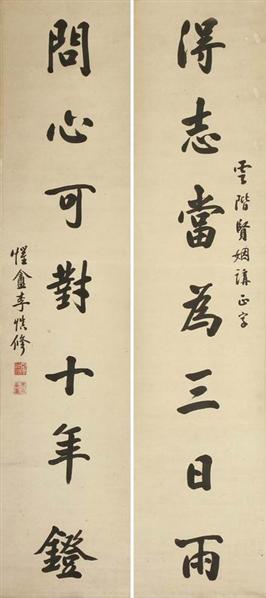 得志當為三日雨
雲階賢姻講正字
問心可對十年鐙
李惺修